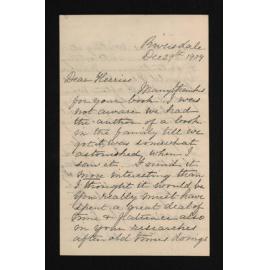 Riversdale
Dec 29th 1909
Dear Herries
Many thanks
for your book. I was
not aware we had
the author of a book
in the family till we
got it, was somewhat
astonished when I
saw it. I find it
more interesting than
I thought it would be
You really must have
spent a great deal of
time & patience also
in your researches
after old times doings